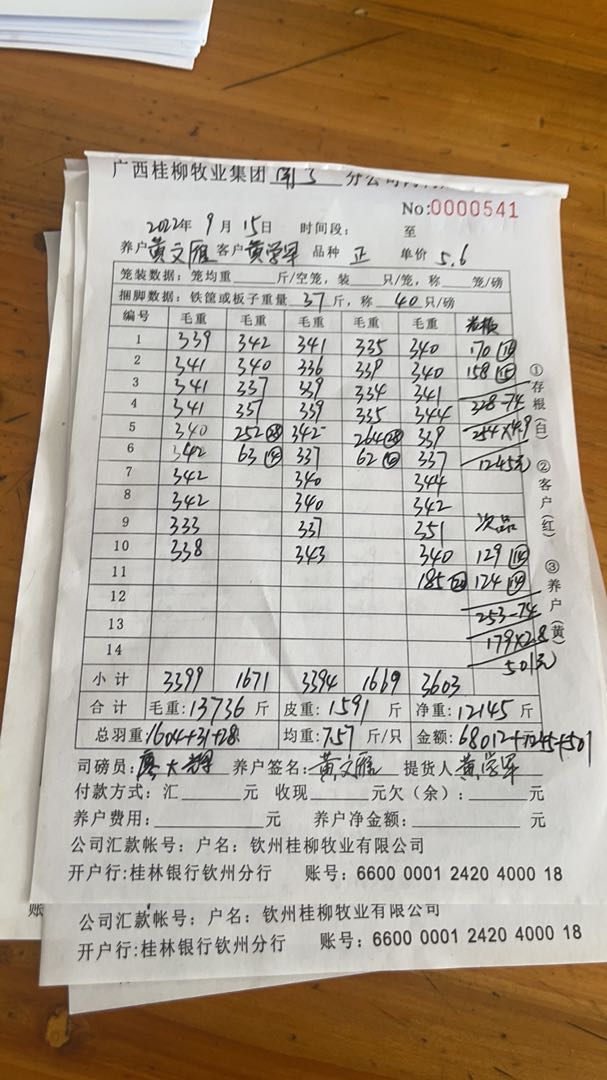 广西桂柳牧业集团 分公司
No:0000541
2022年 9月 15日 时间段: 至
养户 黄文雁 客户 黄学军 品种 正 单价 5.6
笼装数据: 笼均重____斤/空笼, 装____只/笼, 称____笼/磅
捆脚数据: 铁筐或板子重量 37 斤, 称 40 只/磅
编号 毛重 毛重 毛重 毛重 毛重
1 339 342 341 335 340 170
2 341 340 336 339 340 158 ⑮
3 341 337 339 334 341 328-74
4 341 357 339 335 344 254×4.9
5 340 252 342 264 339 1245元
6 342 63 337 62 337
7 342 340 344
8 342 340 342
9 333 337 351 次品
10 338 343 340 129
11 185 124
12 253-74
13 179×2.8
14 501元
小计 3399 1671 3394 1669 3603
合计 毛重: 13736 斤 皮重: 1591 斤 净重: 12145 斤
总羽重: 1604+31+28 均重: 7.57 斤/只 金额: 68012+1245+501
司磅员: 养户签名: 黄文雁 提货人 黄学军
付款方式: 汇____元 收现____元欠(余): ____元
养户费用: ____元 养户净金额: ____元
公司汇款帐号: 户名: 钦州桂柳牧业有限公司
开户行:桂林银行钦州分行 账号: 6600 0001 2420 4000 18
①存根(白) ②客户(红) ③养户(黄)
账
公司汇款帐号: 户名: 钦州桂柳牧业有限公司
开户行:桂林银行钦州分行 账号: 6600 0001 2420 4000 18